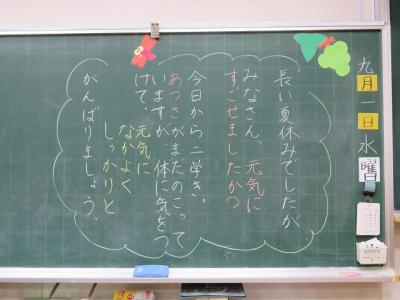 九月一日水曜
長い夏休みでしたが
みなさん、元気に
すごせましたかつ
今日から二学き。
あつさがまだのこって
いますが、体に気をつ
けて、元気に
なかよく
しっかりと
がんばりましょう。